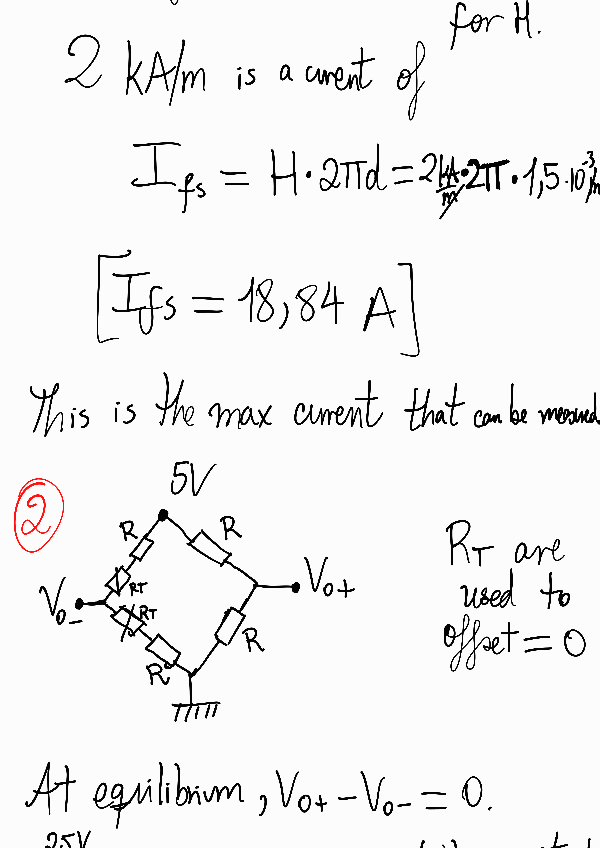 for H.
2 kA/m is a current of
I_fs = H · 2πd = 2 kA/m · 2π · 1,5 · 10⁻³ m
[I_fs = 18,84 A]
This is the max current that can be measured
2
5V
R R
R_T
V_o- R_T V_o+
R R
R_T are
used to
offset = 0
At equilibrium, V_o+ − V_o- = 0.
2.5V